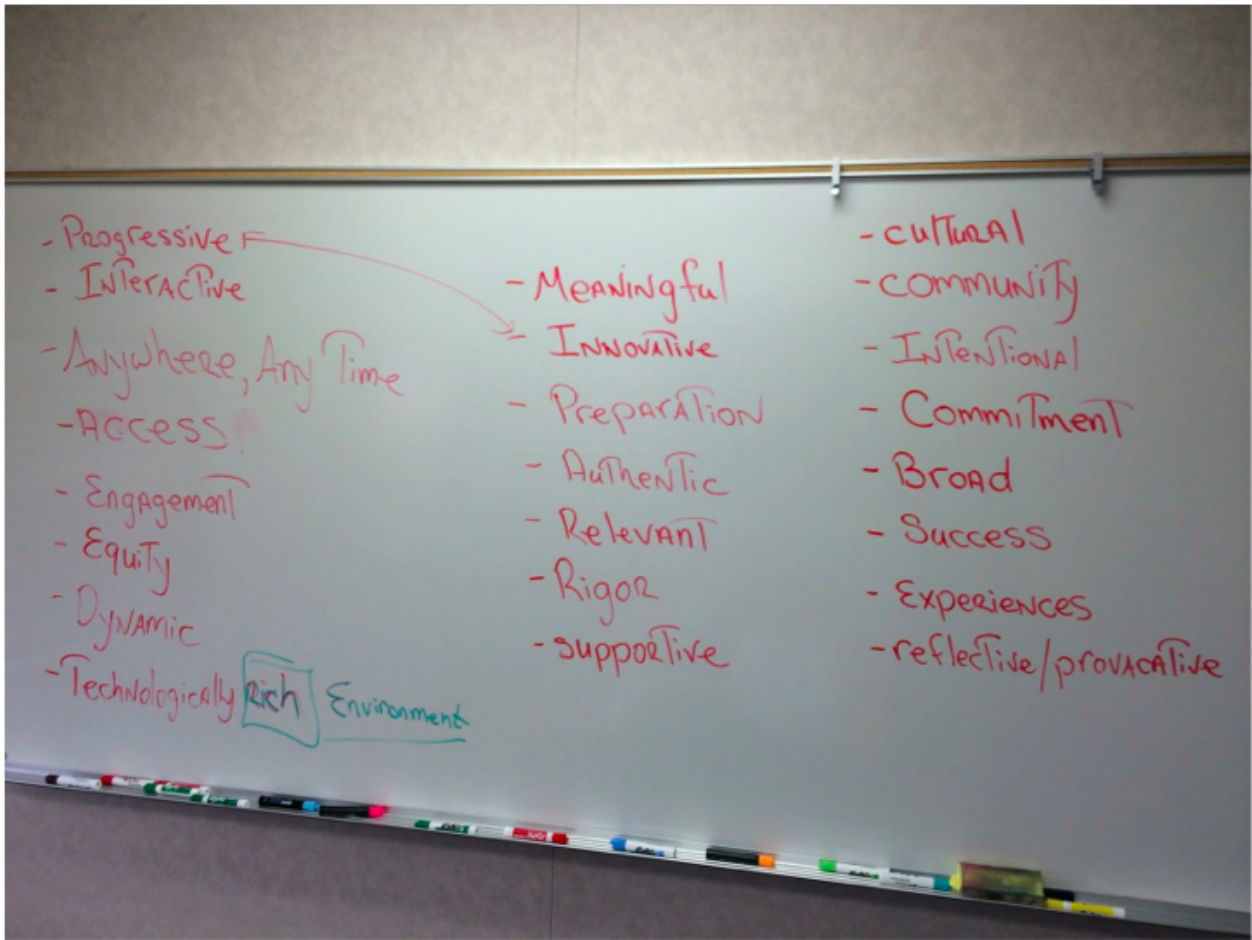 - Progressive
- Interactive
- Anywhere, Any Time
- Access
- Engagement
- Equity
- Dynamic
- Technologically Rich Environment
- Meaningful
- Innovative
- Preparation
- Authentic
- Relevant
- Rigor
- supportive
- cultural
- community
- Intentional
- Commitment
- Broad
- Success
- Experiences
- reflective/provacative